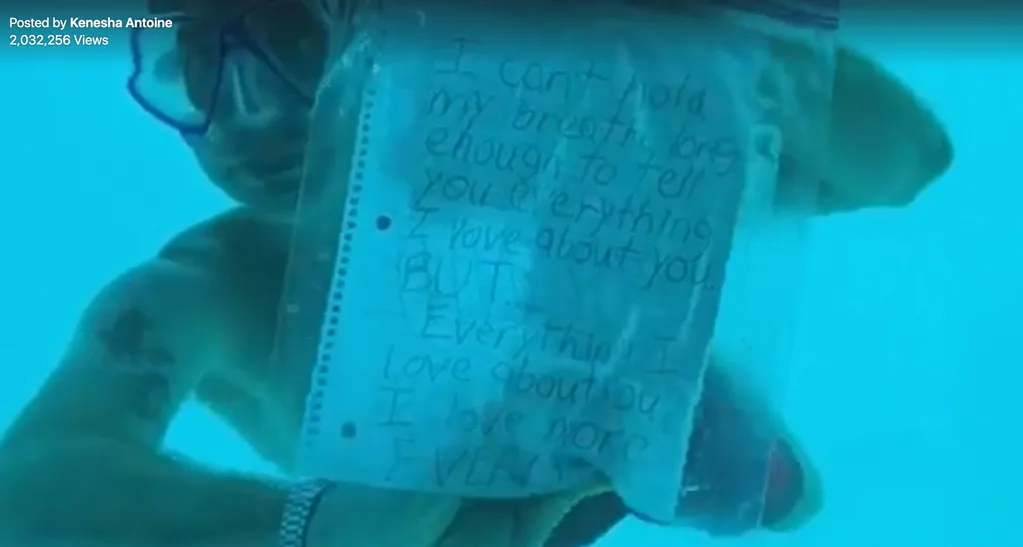 Posted by Kenesha Antoine
2,032,256 Views
I can't hold
my breath long
enough to tell
you everything
I love about you.
BUT...
Everything I
Love about you
I love more
EVERY